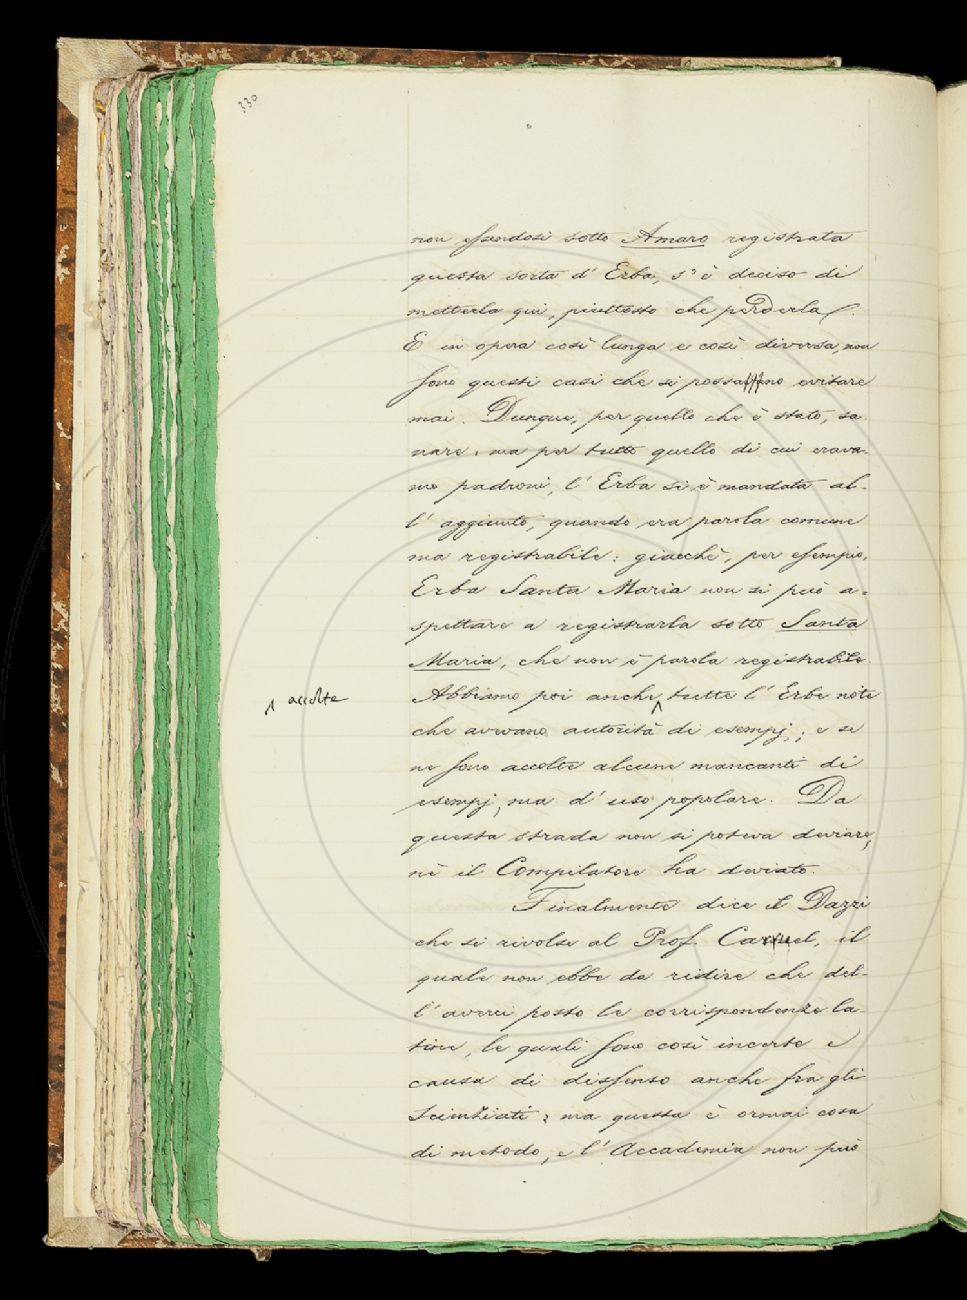 330
non essendosi sotto Amaro registrata
questa sorta d' Erba, s' è deciso di
metterla qui, piuttosto che perderla.
E in opera così lunga e così diversa, non
sono questi casi che si possano evitare
mai. Dunque, per quello che è stato, sa
nare; ma per tutto quello di cui erava-
mo padroni, l' Erba si è mandata al-
l' aggiunto, quando era parola comune
ma registrabile: giacchè, per esempio,
Erba Santa Maria non si può a-
spettare a registrarla sotto Santa
Maria, che non è parola registrabile.
Abbiamo poi anche tutte l' Erbe note
accolte
che avevano autorità di esempj; e se
ne sono accolte alcune mancanti di
esempj, ma d' uso popolare. Da
questa strada non si poteva deviare,
nè il Compilatore ha deviato.
Finalmente dice il Dazzi
che si rivolse al Prof. Caruel, il
quale non ebbe da ridire che del-
l' averci posto le corrispondenze la
tine, le quali sono così incerte e
causa di dissenso anche fra gli
Scienziati; ma questa è ormai cosa
di metodo, e l' Accademia non può